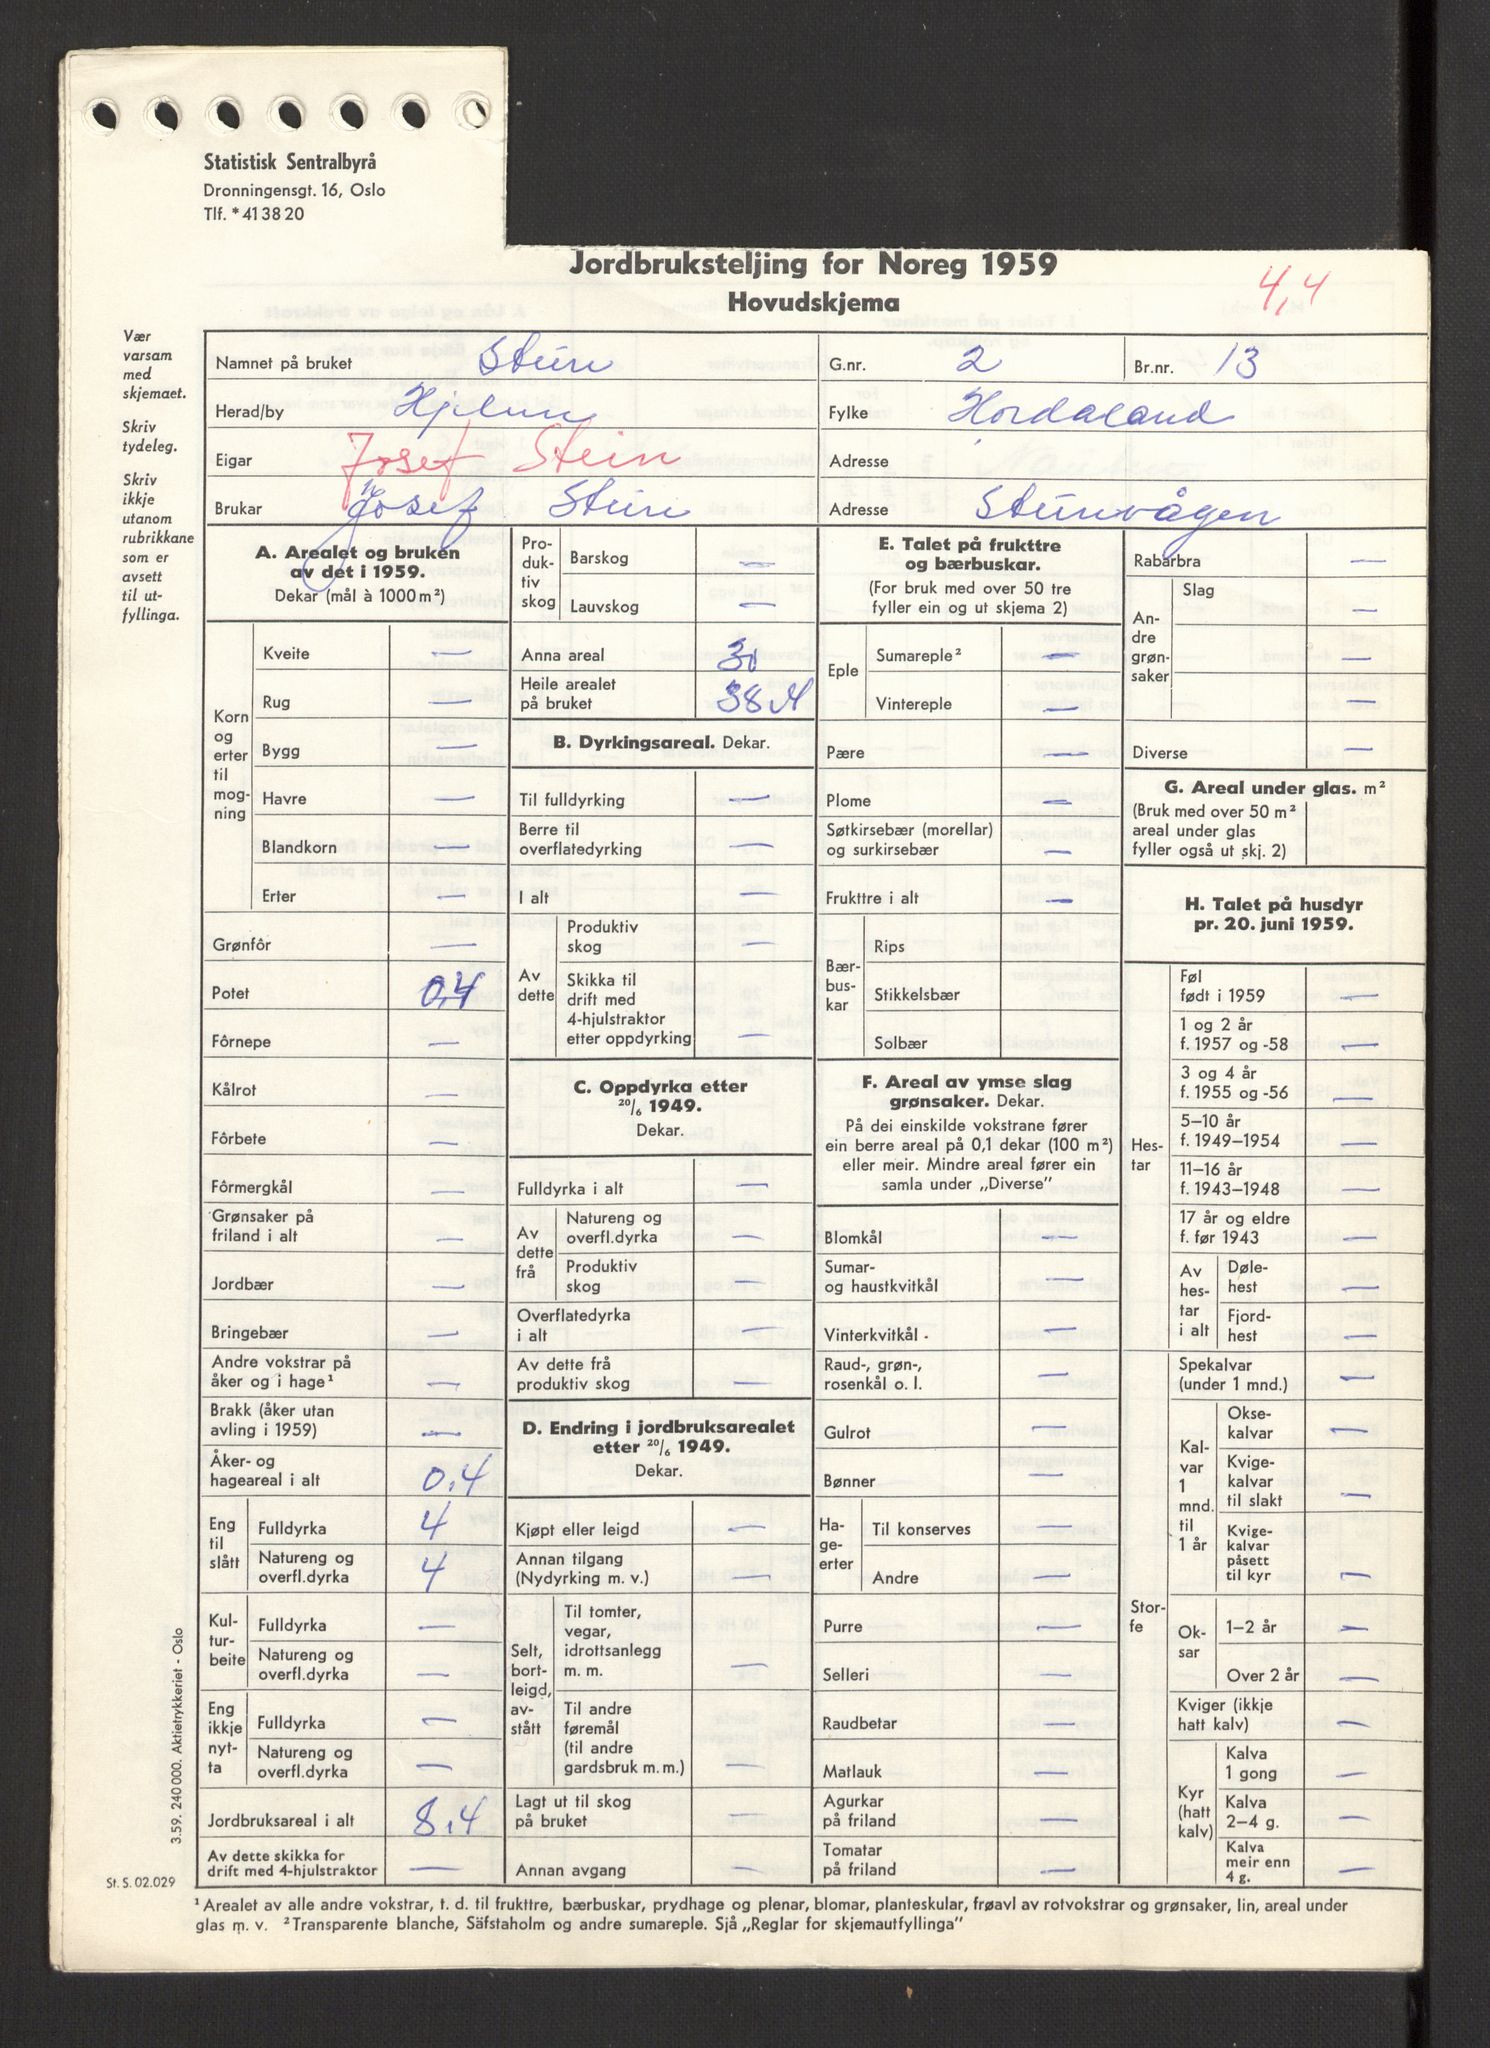 Statistisk Sentralbyrå
Dronningensgt. 16, Oslo
Tlf. *41 38 20
Jordbruksteljing for Noreg 1959
Hovudskjema
4,4
Vær varsam med skjemaet.
Skriv tydeleg.
Skriv ikkje utanom rubrikkane som er avsett til utfyllinga.
Namnet på bruket Stein G.nr. 2 Br.nr. 13
Herad/by Fylke Hordaland
Eigar Josef Stein Adresse
Brukar Josef Stein Adresse Steinvågen
A. Arealet og bruken
av det i 1959.
Dekar (mål à 1000 m²)
Korn og erter til mogning
Kveite —
Rug —
Bygg —
Havre —
Blandkorn —
Erter —
Grønfôr —
Potet 0,4
Fôrnepe —
Kålrot —
Fôrbete —
Fôrmergkål —
Grønsaker på
friland i alt —
Jordbær —
Bringebær —
Andre vokstrar på
åker og i hage¹ —
Brakk (åker utan
avling i 1959) —
Åker- og
hageareal i alt 0,4
Eng til slått
Fulldyrka 4
Natureng og
overfl.dyrka 4
Kulturbeite
Fulldyrka —
Natureng og
overfl.dyrka —
Eng ikkje nytta
Fulldyrka —
Natureng og
overfl.dyrka —
Jordbruksareal i alt 8,4
Av dette skikka for
drift med 4-hjulstraktor —
Produktiv skog
Barskog —
Lauvskog —
Anna areal 30
Heile arealet
på bruket 38,4
B. Dyrkingsareal. Dekar.
Til fulldyrking —
Berre til
overflatedyrking —
I alt —
Av dette
Produktiv
skog —
Skikka til
drift med
4-hjulstraktor
etter oppdyrking —
C. Oppdyrka etter
20/6 1949.
Dekar.
Fulldyrka i alt —
Av dette frå
Natureng og
overfl.dyrka —
Produktiv
skog —
Overflatedyrka
i alt —
Av dette frå
produktiv skog —
D. Endring i jordbruksarealet
etter 20/6 1949.
Dekar.
Kjøpt eller leigd —
Annan tilgang
(Nydyrking m. v.) —
Selt, bortleigd, avstått
Til tomter,
vegar,
idrottsanlegg
m. m. —
Til andre
føremål
(til andre
gardsbruk m. m.) —
Lagt ut til skog
på bruket —
Annan avgang —
E. Talet på frukttre
og bærbuskar.
(For bruk med over 50 tre
fyller ein og ut skjema 2)
Eple
Sumareple² —
Vintereple —
Pære —
Plome —
Søtkirsebær (morellar)
og surkirsebær —
Frukttre i alt —
Bærbuskar
Rips
Stikkelsbær
Solbær
F. Areal av ymse slag
grønsaker. Dekar.
På dei einskilde vokstrane fører
ein berre areal på 0,1 dekar (100 m²)
eller meir. Mindre areal fører ein
samla under „Diverse”
Blomkål —
Sumar-
og haustkvitkål —
Vinterkvitkål —
Raud-, grøn-,
rosenkål o. l. —
Gulrot —
Bønner —
Hageerter
Til konserves —
Andre —
Purre —
Selleri —
Raudbetar —
Matlauk —
Agurkar
på friland —
Tomatar
på friland —
Rabarbra —
Andre grønsaker
Slag —
—
—
Diverse —
G. Areal under glas. m²
(Bruk med over 50 m²
areal under glas
fyller også ut skj. 2)
H. Talet på husdyr
pr. 20. juni 1959.
Hestar
Føl
født i 1959 —
1 og 2 år
f. 1957 og -58 —
3 og 4 år
f. 1955 og -56 —
5–10 år
f. 1949–1954 —
11–16 år
f. 1943–1948 —
17 år og eldre
f. før 1943 —
Av hestar i alt
Dølehest —
Fjordhest —
Storfe
Spekalvar
(under 1 mnd.) —
Kalvar 1 mnd. til 1 år
Oksekalvar —
Kvigekalvar
til slakt —
Kvigekalvar
påsett
til kyr —
Oksar
1–2 år —
Over 2 år —
Kviger (ikkje
hatt kalv) —
Kyr (hatt kalv)
Kalva
1 gong —
Kalva
2–4 g. —
Kalva
meir enn
4 g. —
3.59. 240 000. Aktietrykkeriet - Oslo
St. S. 02.029
¹ Arealet av alle andre vokstrar, t. d. til frukttre, bærbuskar, prydhage og plenar, blomar, planteskular, frøavl av rotvokstrar og grønsaker, lin, areal under
glas m. v. ² Transparente blanche, Säfstaholm og andre sumareple. Sjå „Reglar for skjemautfyllinga”